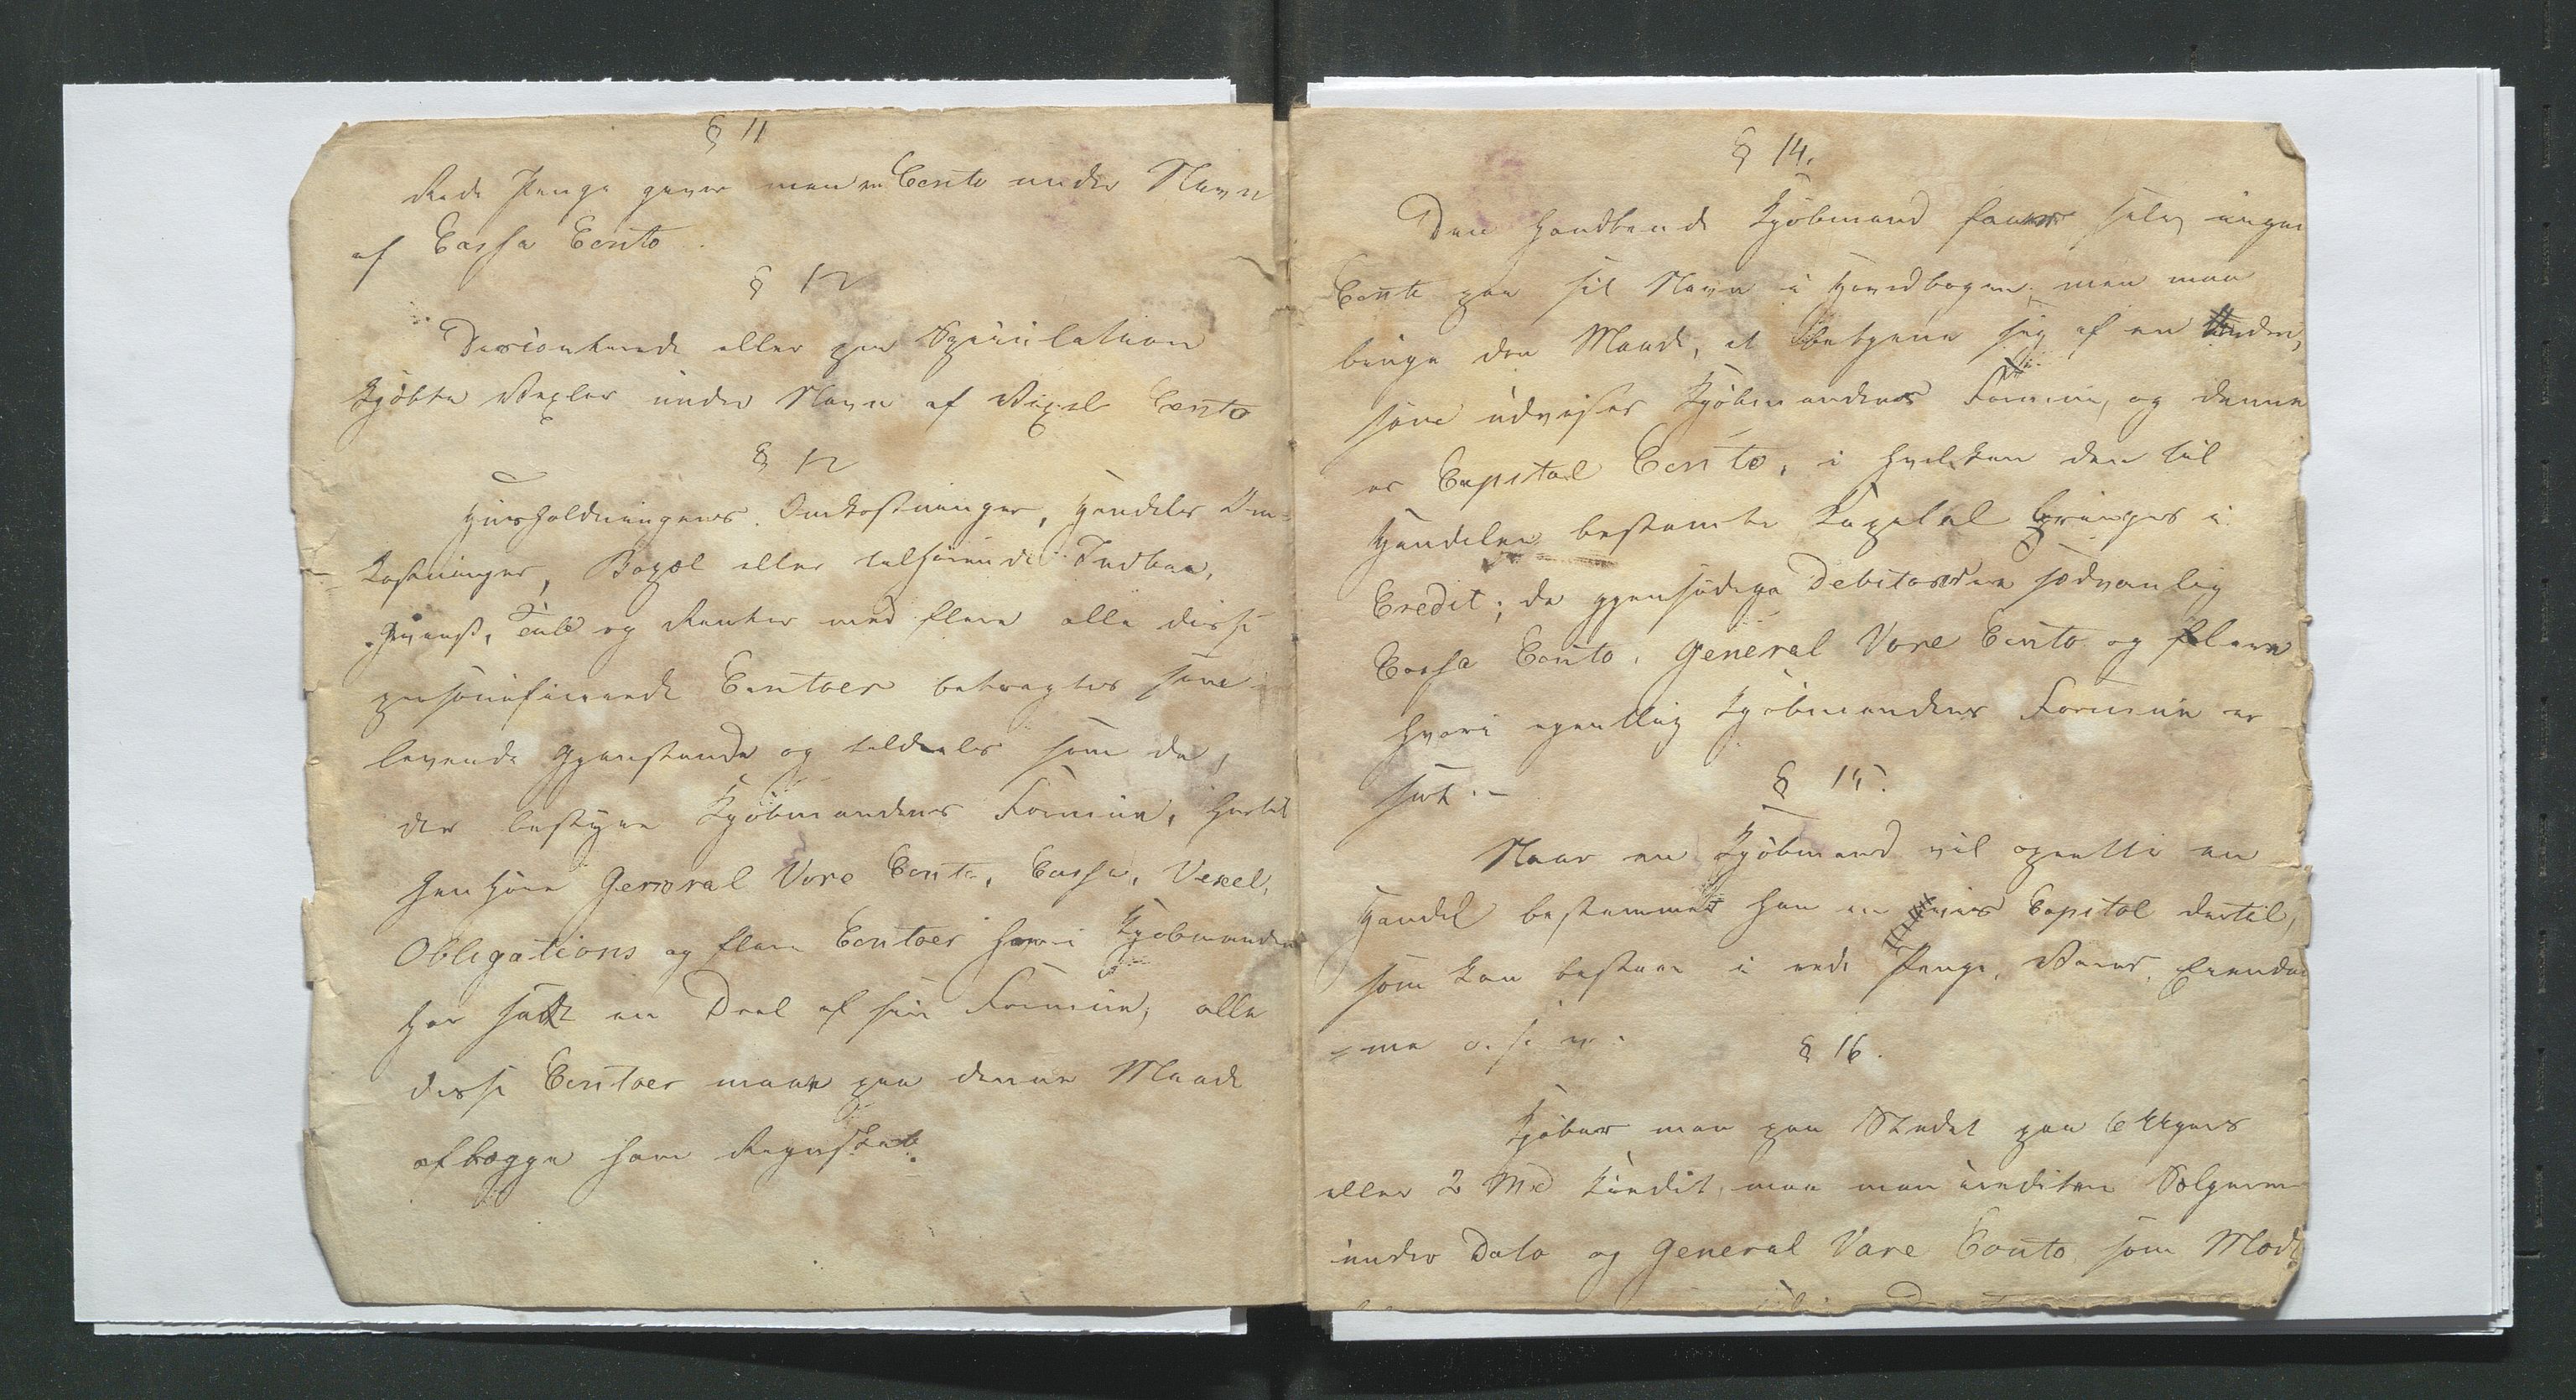 § 11
Rede Penge giver man en Conto under Navn
af Cassa Conto.
§ 12
Disconterede eller paa Speculation
kjöbte Vexler under Navn af Vexel Conto
§ 12
Huusholdningens Omkostninger, Handels Om-
kostninger, tilhörende
og Renter med flere alle disse
personificerede Contoer betragtes som
levende Gjenstande og tildeeles som de,
der bestyre Kjöbmandens Formue, hertil
henhöre General Vare Conto, Cassa, Vexel,
Obligations og flere Contoer hvori Kjöbmanden
har sadt en Deel af sin Formue, alle
disse Contoer maae paa denne Maade
aflægge som Regnskab.
§ 14.
Den handlende Kjöbmand faaer selv ingen
Conto paa sit Navn i Hovedbogen, men maa
bruge den Maade, at betjene sig af en anden,
som udviser Kjöbmandens Formue, og denne
er Capital Conto, i hvilken den til
Handelen bestemte Kapital bringes i
Credit; de gjensidige Debitorer ere sædvanlig
Cassa Conto, General Vare Conto og flere
hvori egentlig Kjöbmandens Formue er
sat.-
§ 15.
Naar en Kjöbmand vil oprette en
Handel bestemmer han en vis Capital dertil,
som kan bestaae i rede Penge, Varer, Eiendom-
=me o. s. v.
§ 16.
Kjöber man paa Stedet paa 6 Ugers
eller 2 Md Kredit, maa man creditere Sælgeren
under Dato og General Vare Conto som Mod